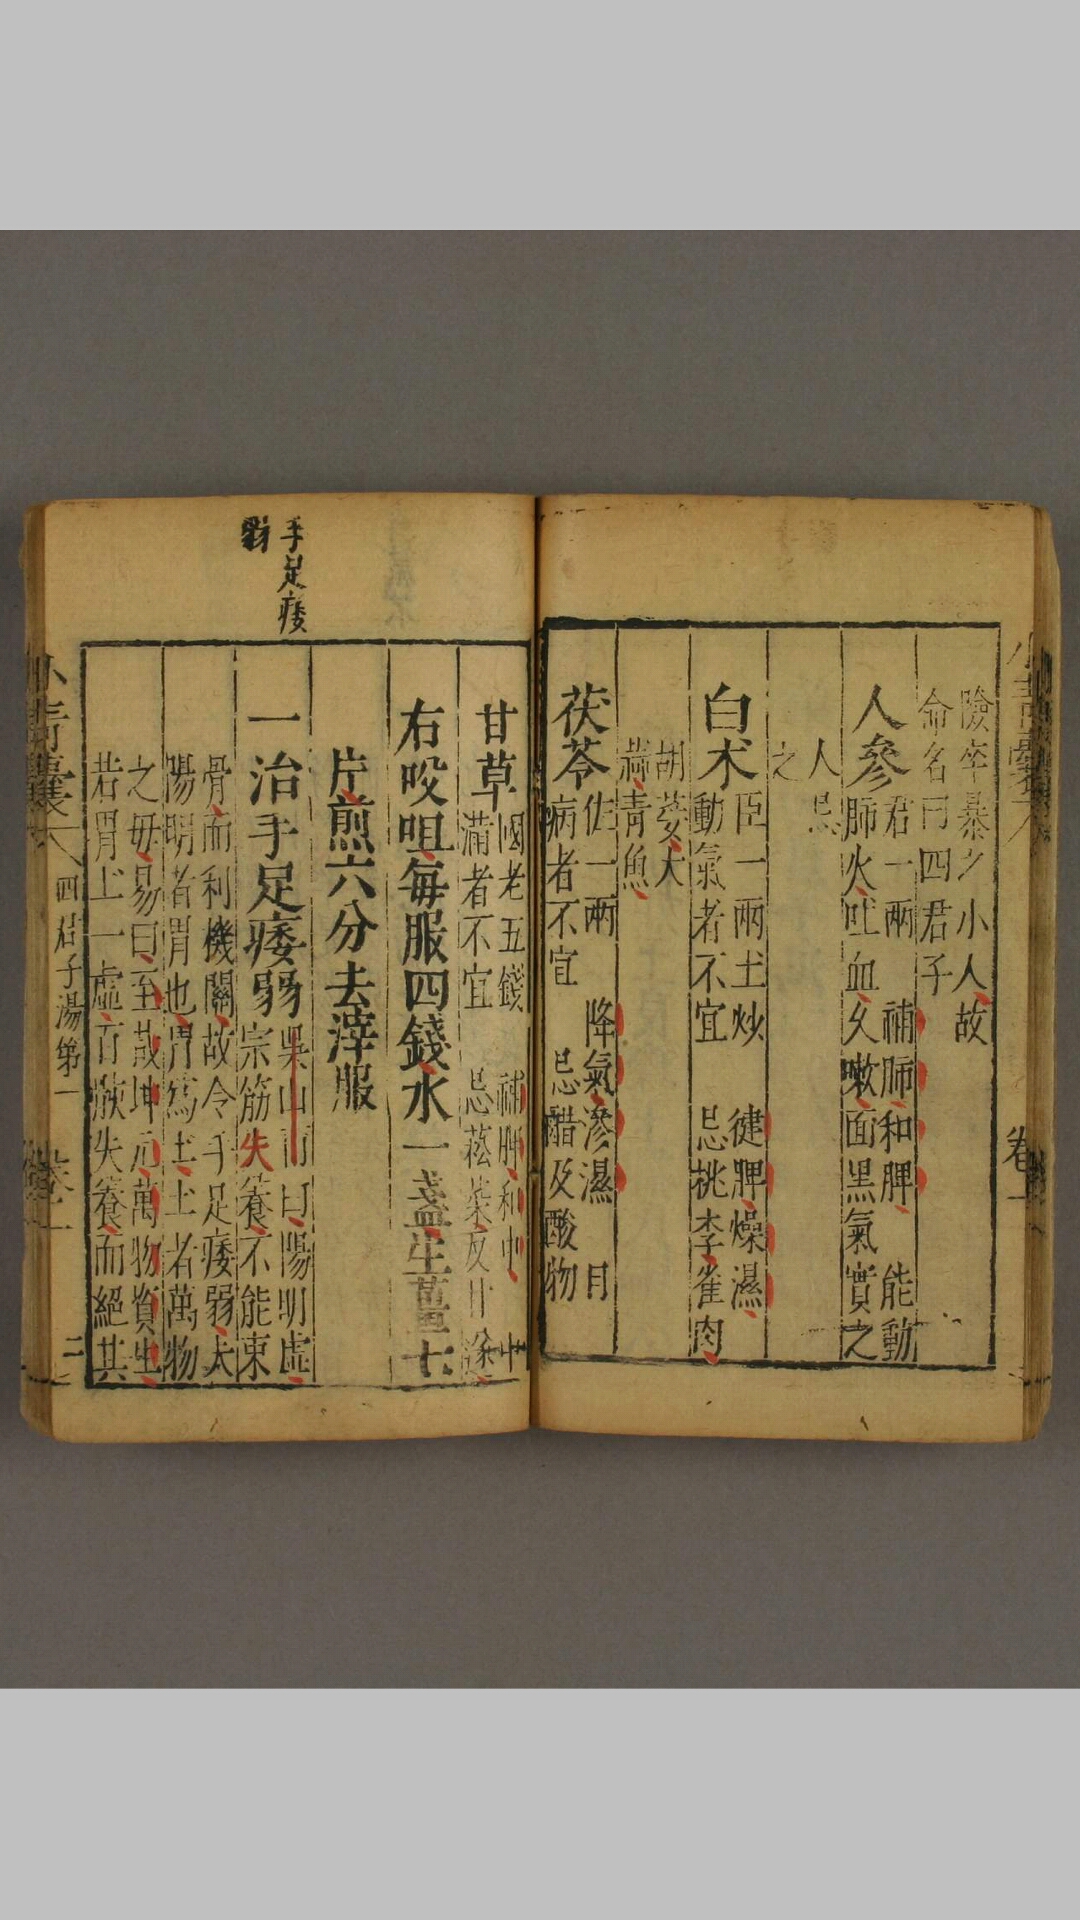 險卒暴之小人故
命名曰四君子
人參 君一兩 補肺和脾 能動
肺火吐血久嗽面黑氣實之
人忌
之
白术 臣一兩土炒 健脾燥濕
動氣者不宜 忌桃李雀肉
胡荽大
蒜青魚
茯苓 佐一兩 降氣滲濕 目
病者不宜 忌醋及酸物
甘草 國老五錢 補脾和中 中
滿者不宜 忌菘菜反甘遂
右㕮咀每服四錢水一盞生薑七
片煎六分去滓服
手足痿
弱
一治手足痿弱 吳山甫曰陽明虛
宗筋失養不能束
骨而利機關故令手足痿弱太
陽明者胃也胃為土土者萬物
之毋易曰至哉坤元萬物資生
若胃土一虛百骸失養而絕其
四君子湯第一
卷一
二